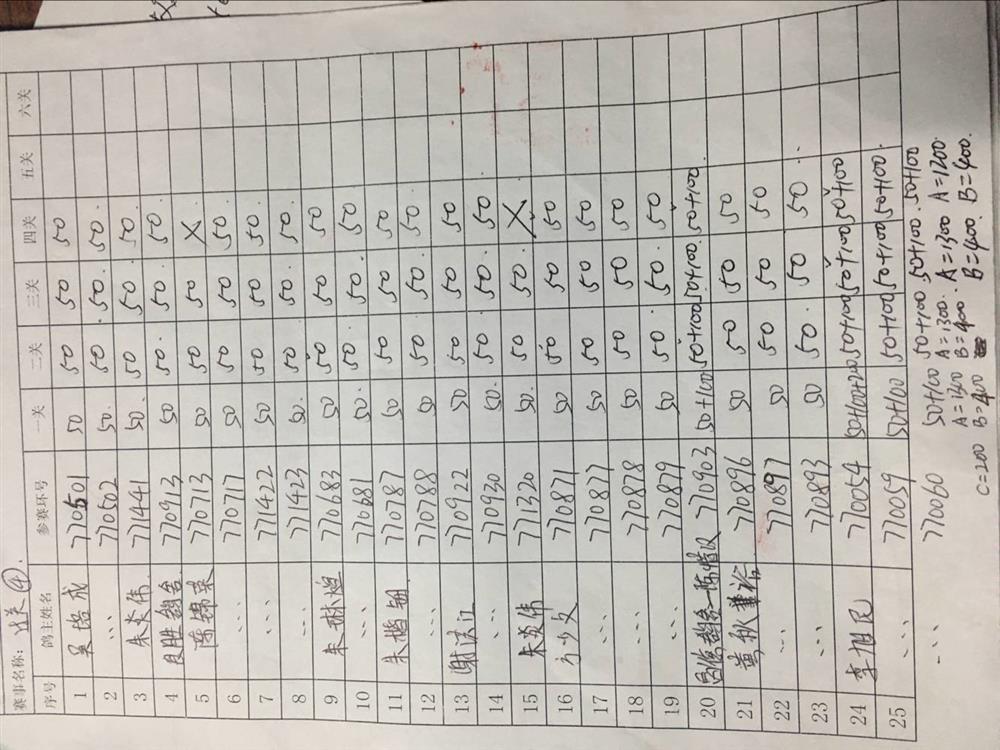 赛事名称: 过关 ④.
序号 鸽主姓名 参赛环号 一关 二关 三关 四关 五关 六关
1 吴培成 770501 50 50 50 50
2 ... 770502 50. 50. 50. 50.
3 朱炎伟 771441 50. 50 50. 50.
4 良胜鸽舍 770913 50 50 50. 50.
5 陈锦荣 770713 50 50 50 X
6 ... 770717 50 50 50. 50.
7 ... 771422 50 50 50. 50.
8 ... 771423 50. 50 50. 50.
9 朱林煌 770683 50 50 50. 50
10 ... 770681 50. 50. 50. 50
11 朱楷钿 770787 50 50 50. 50
12 ... 770788 50 50 50. 50.
13 谢汉江 770922 50 50 50. 50
14 ... 770930 50. 50 50. 50
15 朱炎伟 771320 50. 50 50. X
16 方少文 770871 50 50 50 50
17 ... 770877 50 50 50 50
18 ... 770878 50 50 50 50
19 ... 770879 50 50. 50. 50
20 770903 50+100 50+100 50+100. 50+100.
21 770896 50 50 50 50
22 ... 770897 50 50 50 50
23 ... 770893 50 50. 50 50
24 李旭民 770054 50+100+200 50+100 50+100 50+100
25 ... 770059 50+100 50+100 50+100 50+100.
... 770060 50+100 50+100 50+100. 50+100
A=1300. A=1300 A=1200.
B=400 B=400. B=400. B=400.
C=200